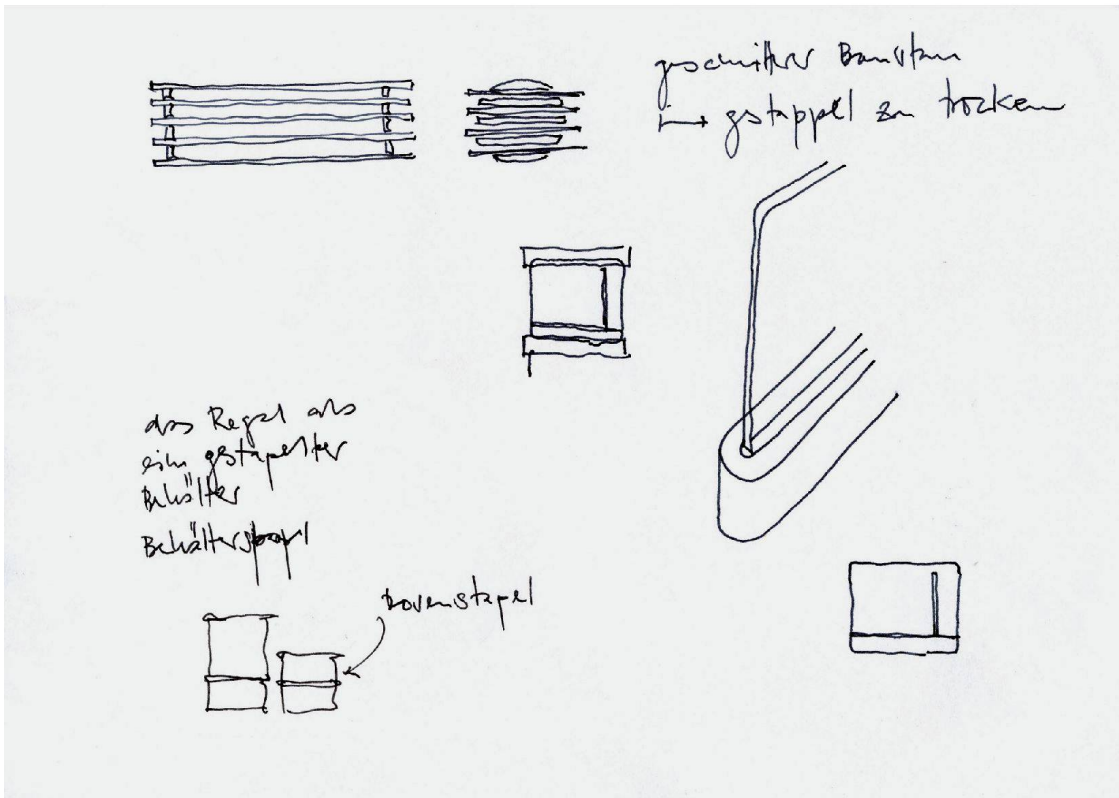 geschnitter Baumstam
gstappel zu trocken
das Regal als
ein gstapelter
Behälter
Behälterstapel